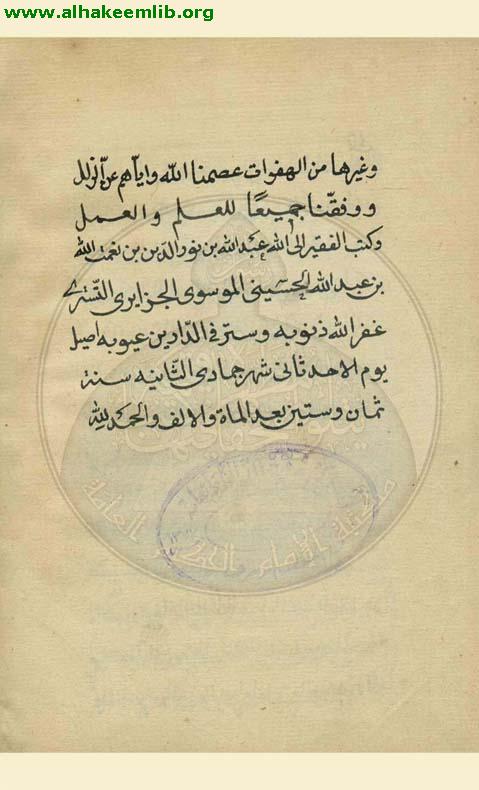 www.alhakeemlib.org
وغيرها من الهفوات عصمنا الله واياهم عن الزلل
ووفقنا جميعًا للعلم والعمل
وكتب الفقير الى الله عبد الله بن نور الدين بن نعمت الله
بن عبد الله الحسينى الموسوى الجزايرى التسترى
غفر الله ذنوبه وستر فى الدارين عيوبه اصيل
يوم الاحد ثانى شهر جمادى الثانيه سنة
ثمان وستين بعد الماة والالف والحمد لله
مكتبة الإمام الحكيم العامة